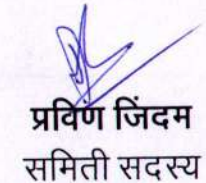 प्रविण जिंदम
समिती सदस्य